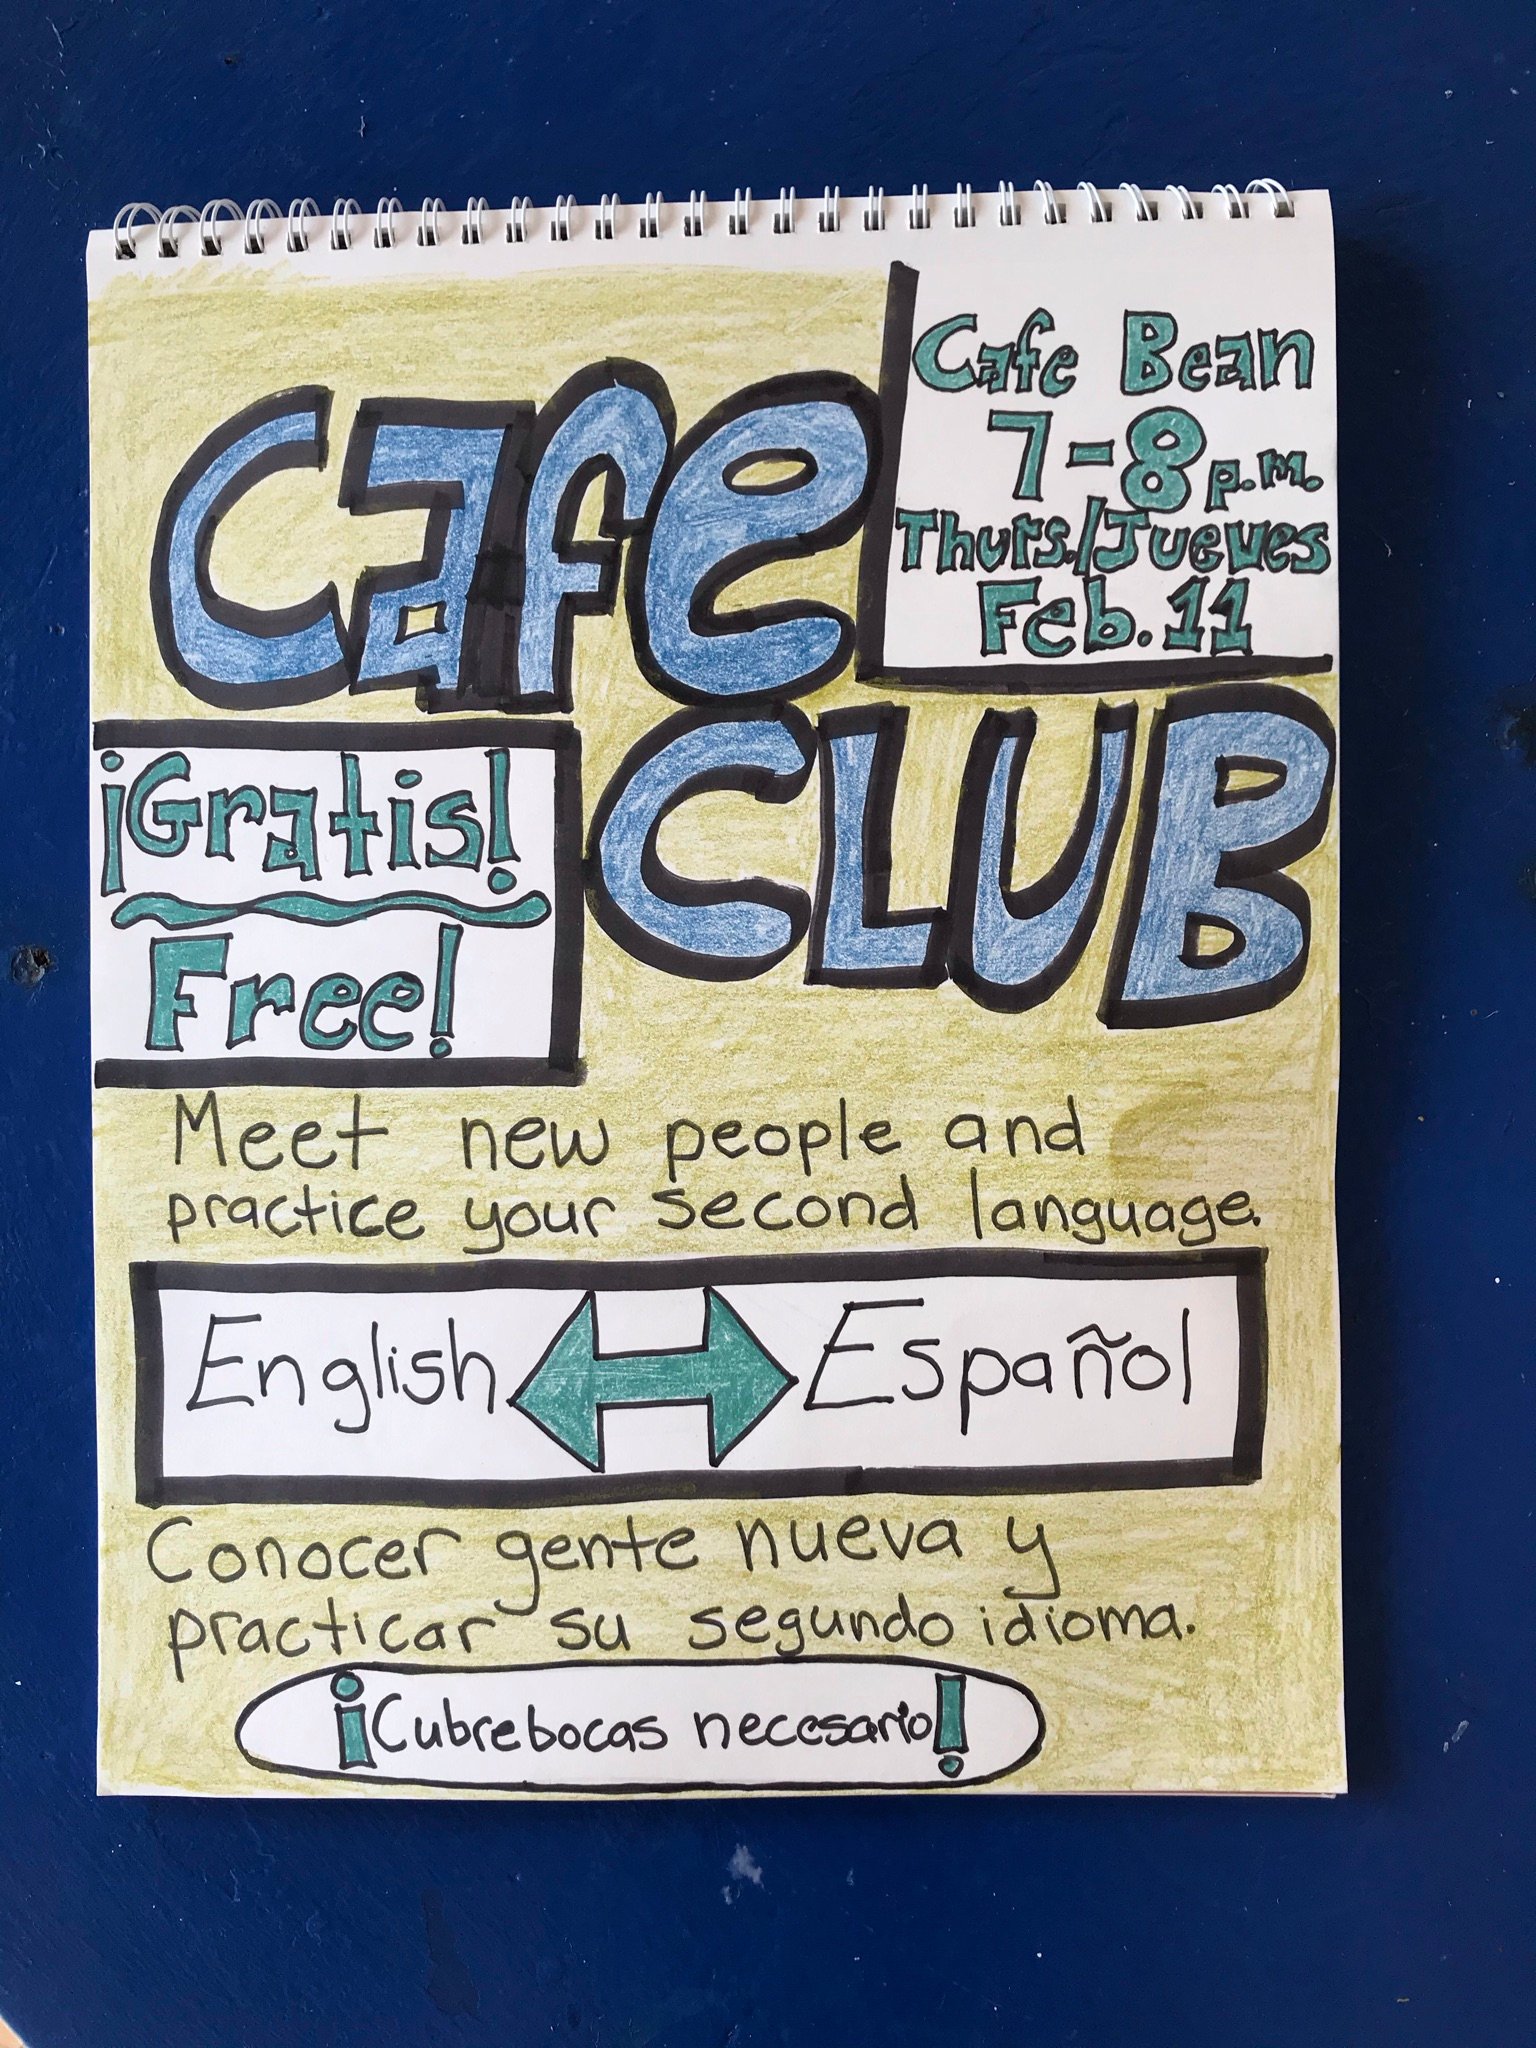 Cafe Bean
7-8 p.m.
Thurs./Jueves
Feb. 11
Cafe
CLUB
¡Gratis!
Free!
Meet new people and
practice your second language.
English Español
Conocer gente nueva y
practicar su segundo idioma.
¡Cubrebocas necesario!